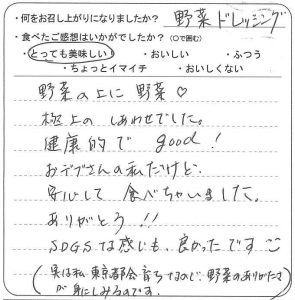 ・何をお召し上がりになりましたか？ 野菜ドレッシング
・食べたご感想はいかがでしたか？（○で囲む）
・とっても美味しい！ ・おいしい ・ふつう
・ちょっとイマイチ ・おいしくない
野菜の上に野菜♡
極上のしあわせでした。
健康的で good!
おデブさんの私だけど、
安心して食べちゃいました。
ありがとう!!
SDGSな感じも、良かったです
(実は私 東京都会育ちなので、野菜のありがたさ
が身にしみるのです。)